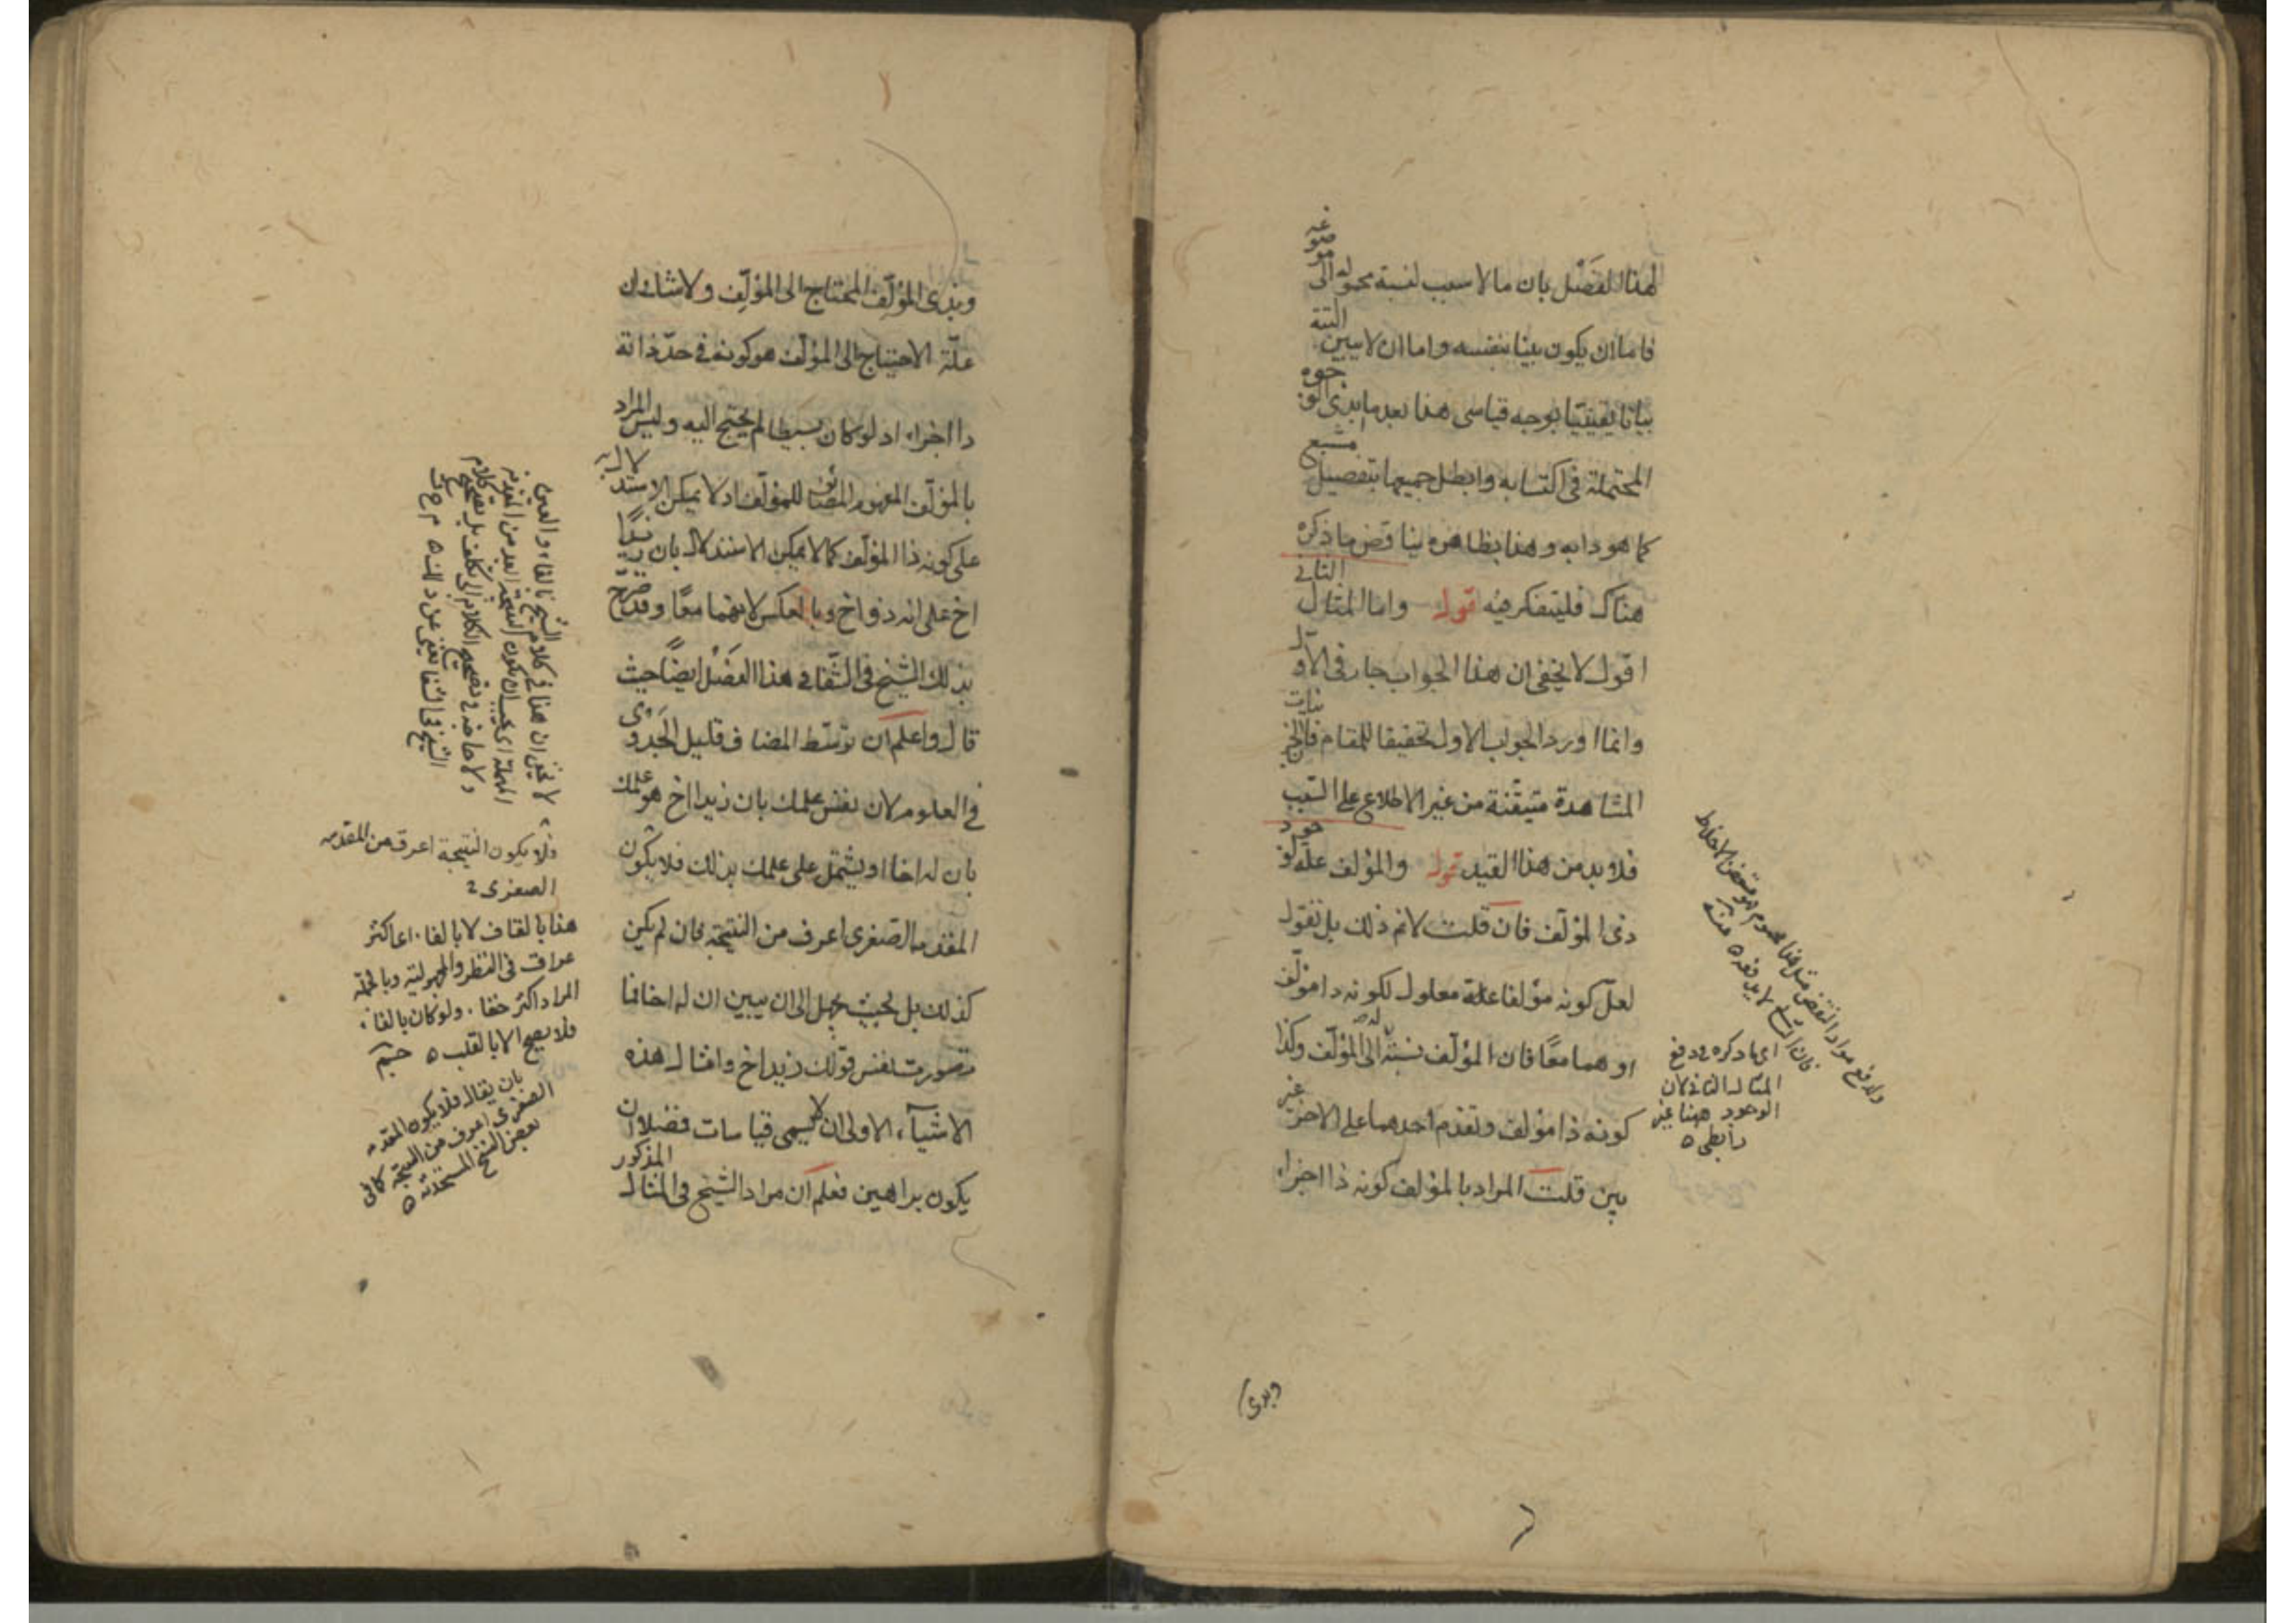 لهذا الفصل بان ما لا سبب لنسبة محموله الى موضوعه
فاما ان يكون بينا بنفسه واما ان لا يبين البتة
بيانا يقينيا بوجه قياسى هذا بعد ما ابدى الوجوه
المحتملة فى اكتسابه وابطل جميعها بتفصيل مشبع
كما هو دابه وهذا بظاهره يناقض ما ذكره
هناك فليتفكر فيه قوله واما المثال الثانى
اقول لا يخفى ان هذا الجواب جار فى الاول
وانما اورد الجواب الاول تحقيقا للمقام فان الجزئيات
المشاهدة متيقنة من غير الاطلاع على السبب
فلا بد من هذا القيد قوله والمؤلف علة لوجود
ذى المؤلف فان قلت لا نم ذلك بل نقول
لعل كونه مؤلفا علة معلول لكونه ذا مؤلف
او هما معا فان المؤلف نسبته الى المؤلف وكذا
كونه ذا مؤلف وتقدم احدهما على الاخر غير
بين قلت المراد بالمؤلف كونه ذا اجزاء
اى ما ذكره فى دفع
المثال الثانى لان
الوجود ههنا غير
رابطى
وبذى
وبذى المؤلف المحتاج الى المؤلف ولا شك ان
علة الاحتياج الى المؤلف هو كونه فى حد ذاته
ذا اجزاء اذ لو كان بسيطا لم يحتج اليه وليس المراد
بالمؤلف المفهوم المضائف للمؤلف اذ لا يمكن الاستدلال به
على كونه ذا المؤلف كما لا يمكن الاستدلال بان زيدا
اخ على انه ذو اخ وبالعكس لانهما معا وقد صرح
بذلك الشيخ فى الشفا فى هذا الفصل ايضا حيث
قال واعلم ان توسط المضاف قليل الجدوى
فى العلوم لان نفس علمك بان زيدا اخ هو علمك
بان له اخا او يشتمل على علمك بذلك فلا يكون
المقدمة الصغرى اعرف من النتيجة فان لم يكن
كذلك بل بحيث يجهل الى ان يبين ان له اخا فما
تصورت نفس قولك زيد اخ وامثال هذه
الاشياء الاولى ان لا يسمى قياسات فضلا ان
يكون براهين فعلم ان مراد الشيخ فى المثال المذكور
فلا يكون النتيجة اعرف من المقدمه
الصغرى
هذا بالقاف لا بالفاء
المراد اكثر خفاء ولو كان بالفاء
فلا يصح الا بالقلب
بان يقال فلا يكون المقدمه
الصغرى اعرف من النتيجة كما فى
بعض النسخ المستحدثه